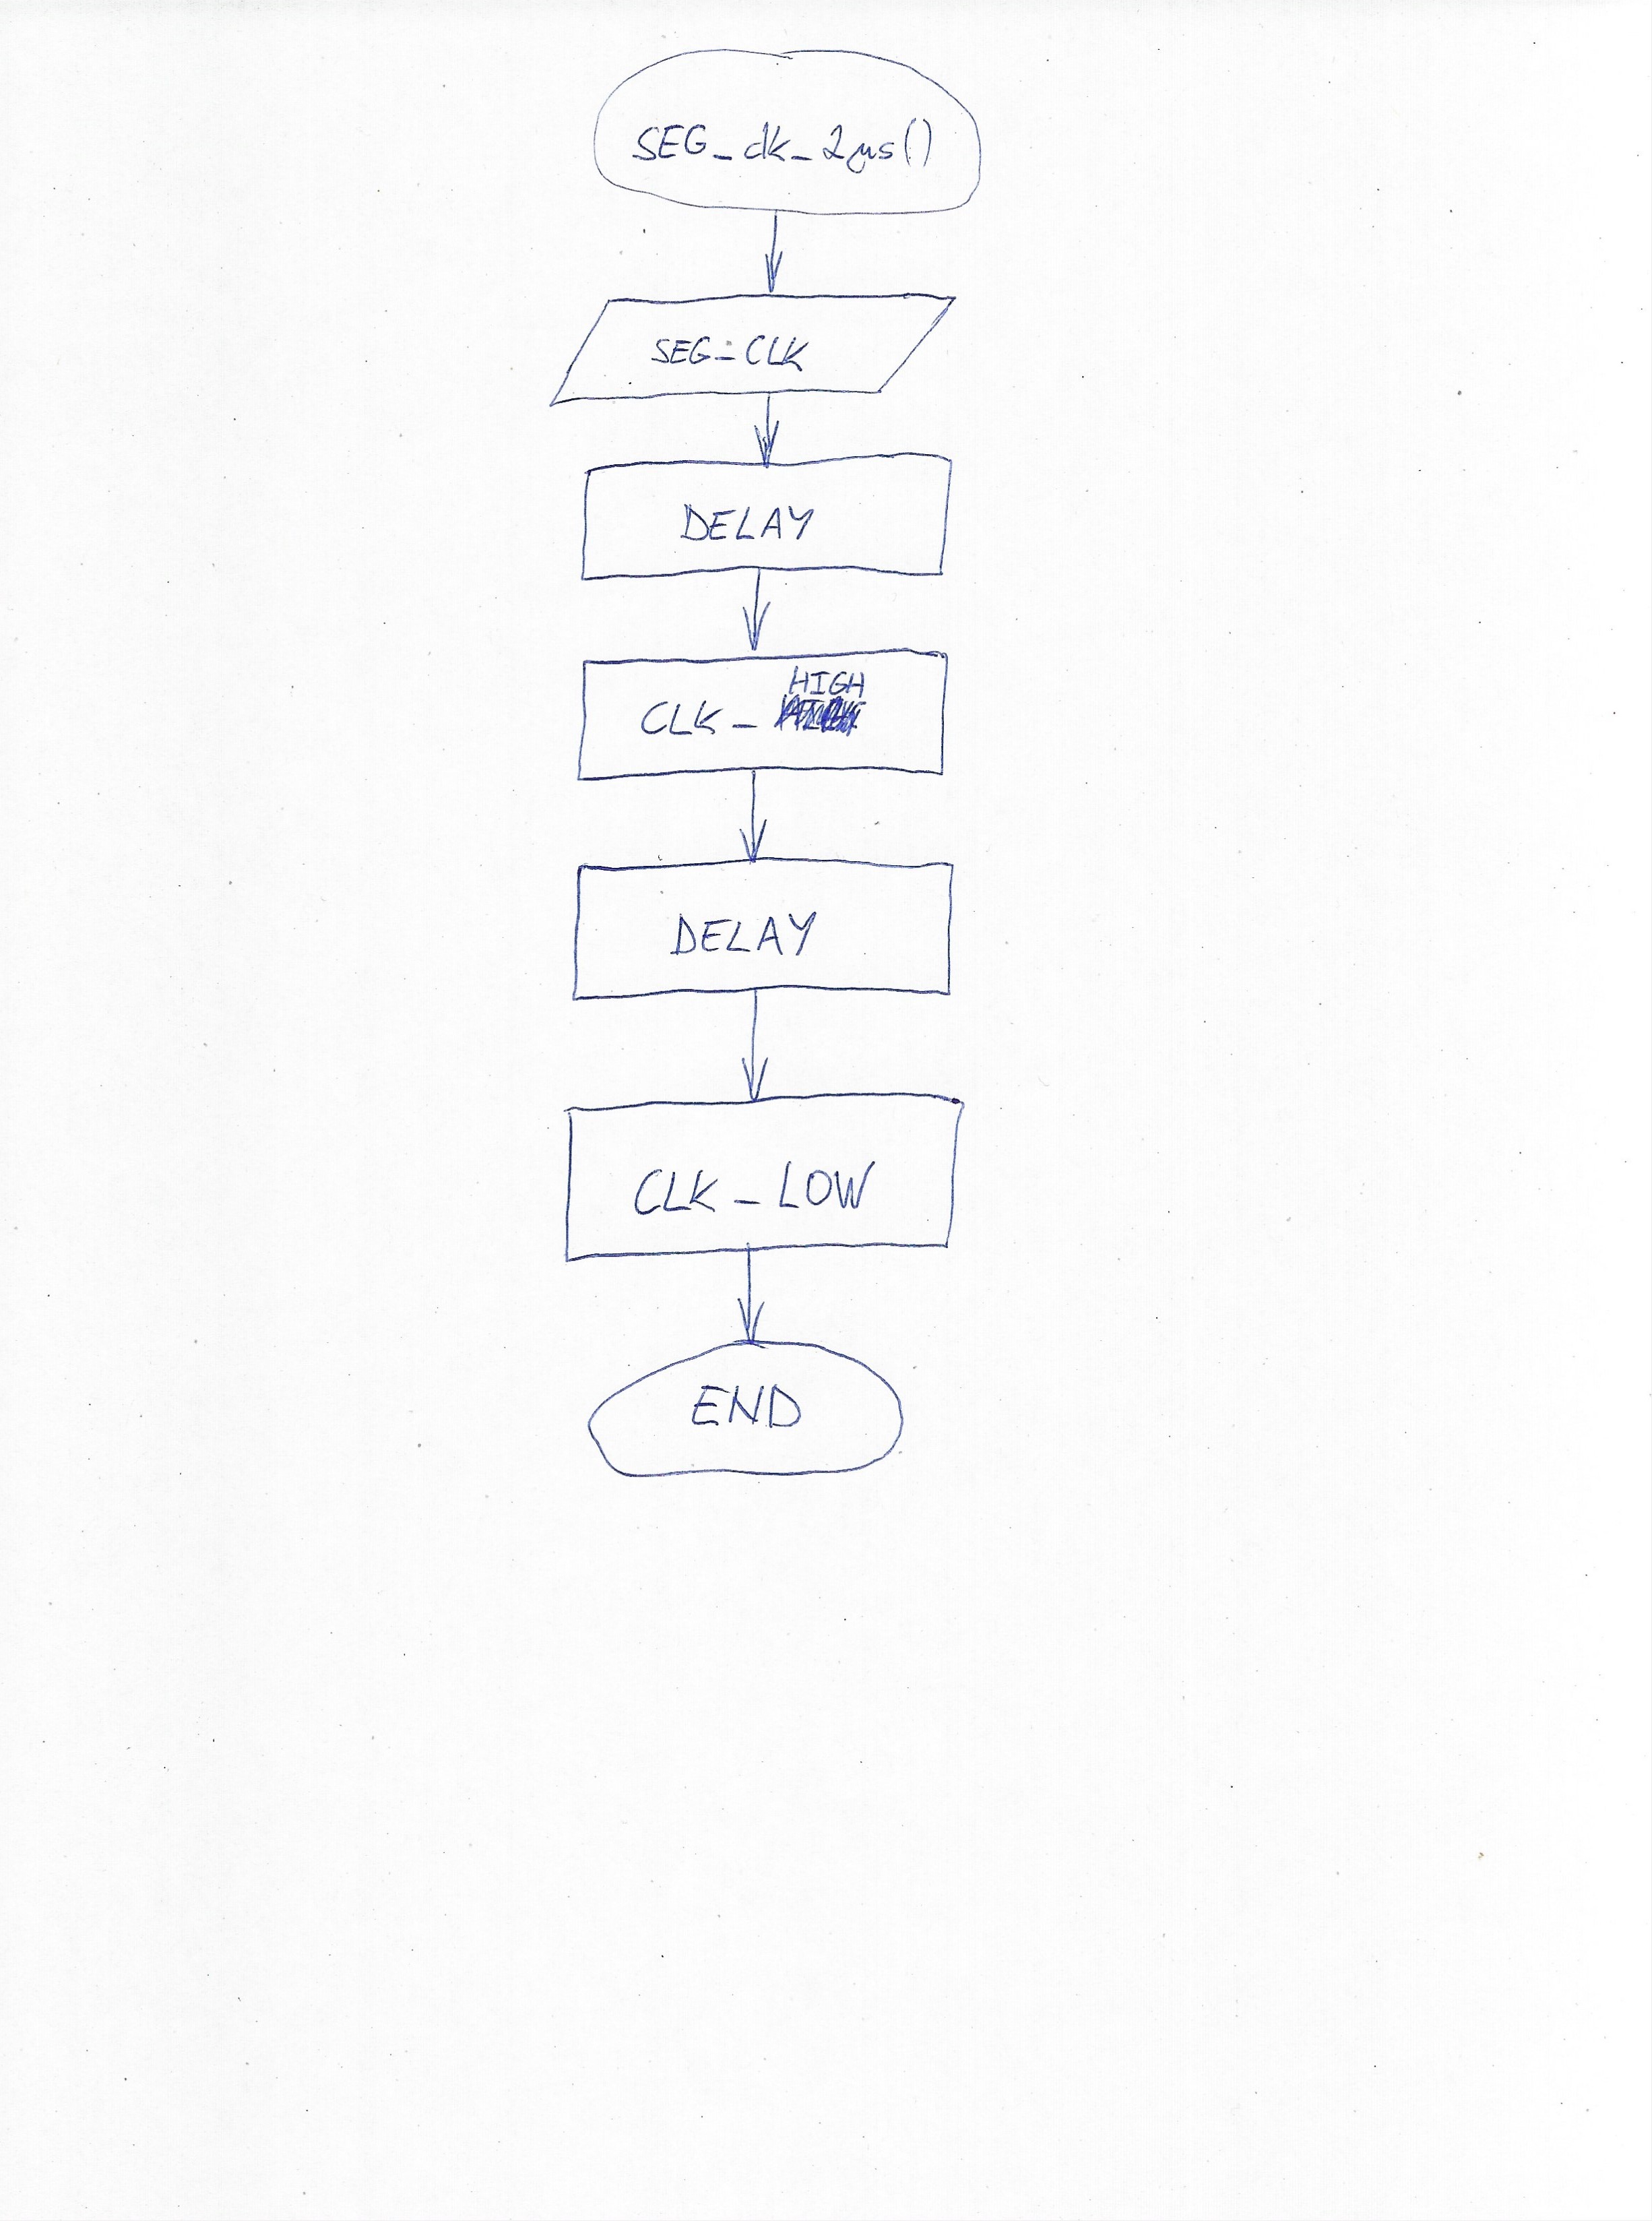 SEG_clk_2μs()
SEG_CLK
DELAY
HIGH
CLK_
DELAY
CLK_LOW
END